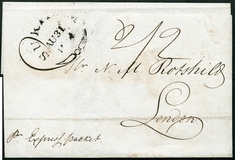 AU31
2/2
Mr N. M. Rothschild
London
pr Express packet